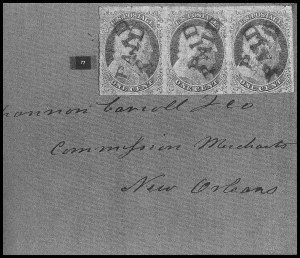 U.S. POSTAGE U.S. POSTAGE U.S. POSTAGE
PAID PAID PAID
ONE CENT ONE CENT ONE CENT
hannon Carroll & Co
Commission Merchants
New Orleans